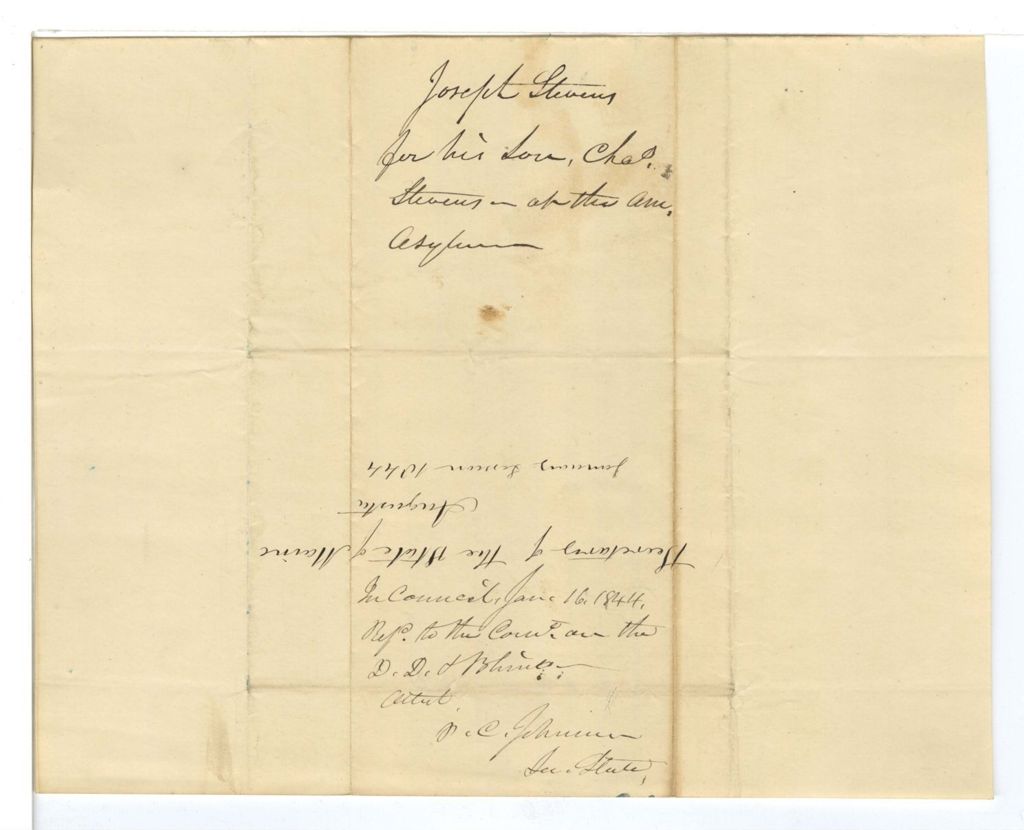 Joseph Stevens
for his Son, Chas.
Stevens - at the Am.
Asylum
January Session 1844
Augusta
Secretary of the State of Maine
In Council, Jan. 16. 1844.
Refd. to the Comte. on the
D. D. & Blind.
Attest,
P. C. Johnson
Sec. State,